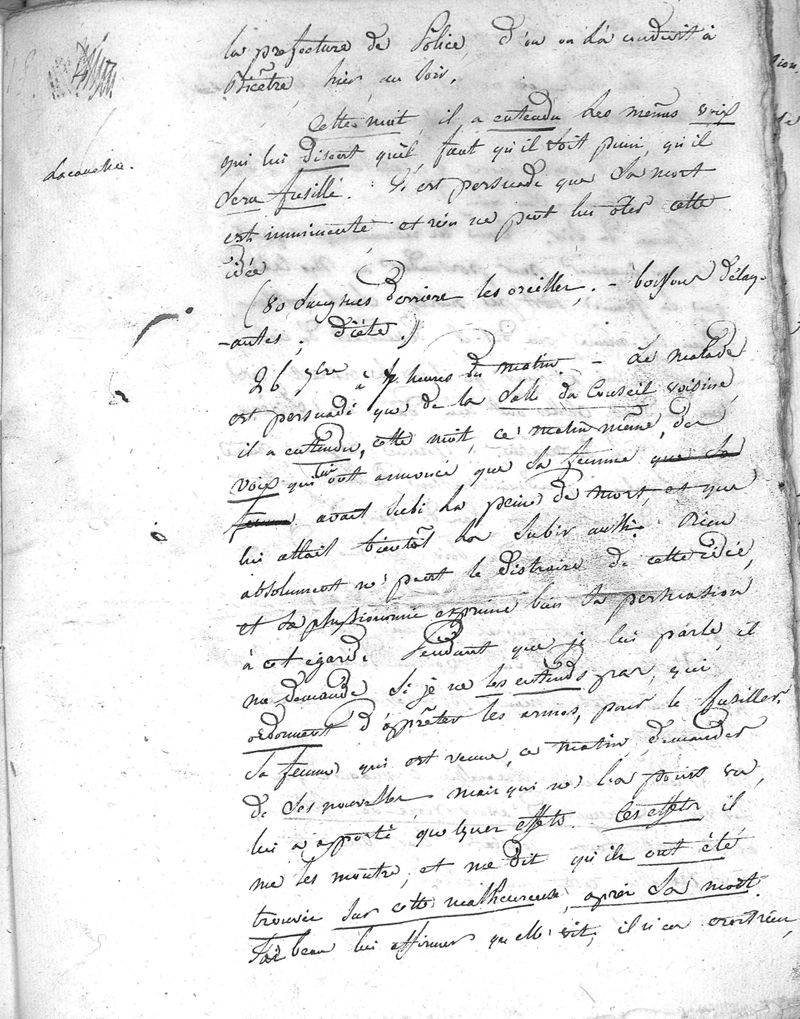 la prefecture de Police, d'ou on l'a conduit à
Bicêtre, hier au soir.
Cette nuit, il a entendu les mêmes voix
qui lui disent qu'il faut qu'il soit puni, qu'il
sera fusillé. Il est persuadé que sa mort
est imminente et rien ne peut lui oter cette
idée
(80 sangsues derrière les oreilles. - boissons délay-
-antes; diète.)
26 9bre à heures du matin. - Le malade
est persuadé que de la Salle du Conseil voisine,
il a entendu, cette nuit, ce matin même, des
voix qui lui ont annoncé que sa femme que sa
femme avait subi la peine de mort, et que
lui allait bientôt la subir aussi. Rien
absolument ne peut le distraire de cette idée,
et sa physionomie exprime bien sa persuasion
à cet égard. Pendant que je lui parle, il
me demande si je ne les entends pas, qui
ordonnent d'aprêter les armes, pour le fusiller.
Sa femme qui est venue, ce matin, demander
de ses nouvelles mais qui ne l'a point vu,
lui a apporté quelques effets. Ces effets il
me les montre, et me dit qu'ils ont été
trouvés sur cette malheureuse, après sa mort.
J'ai beau lui affirmer qu'elle vit, il n'en croit rien,
Lacouche.